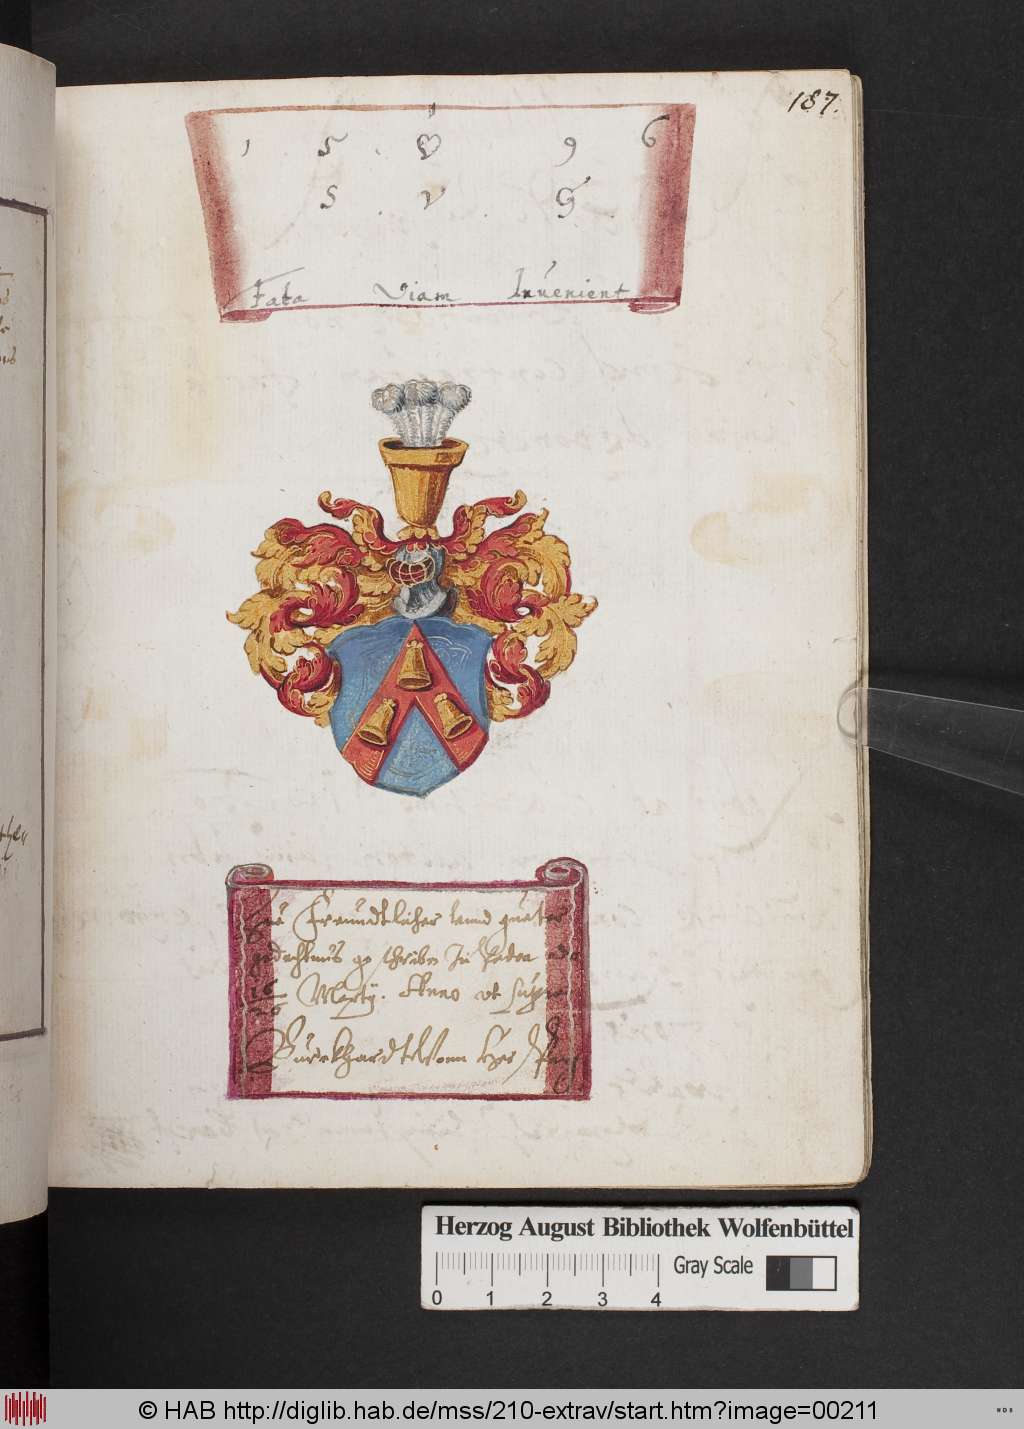 187.
1 5 9 6
S . V . G .
Fata Viam Inuenient
Zue Freundtlicher vnnd gueter
gedechtnus geschriben In Padoa
16
26 Martij. Anno vt supra
Burkhardt Vonn
Herzog August Bibliothek Wolfenbüttel
Gray Scale
0 1 2 3 4
© HAB http://diglib.hab.de/mss/210-extrav/start.htm?image=00211
HAB